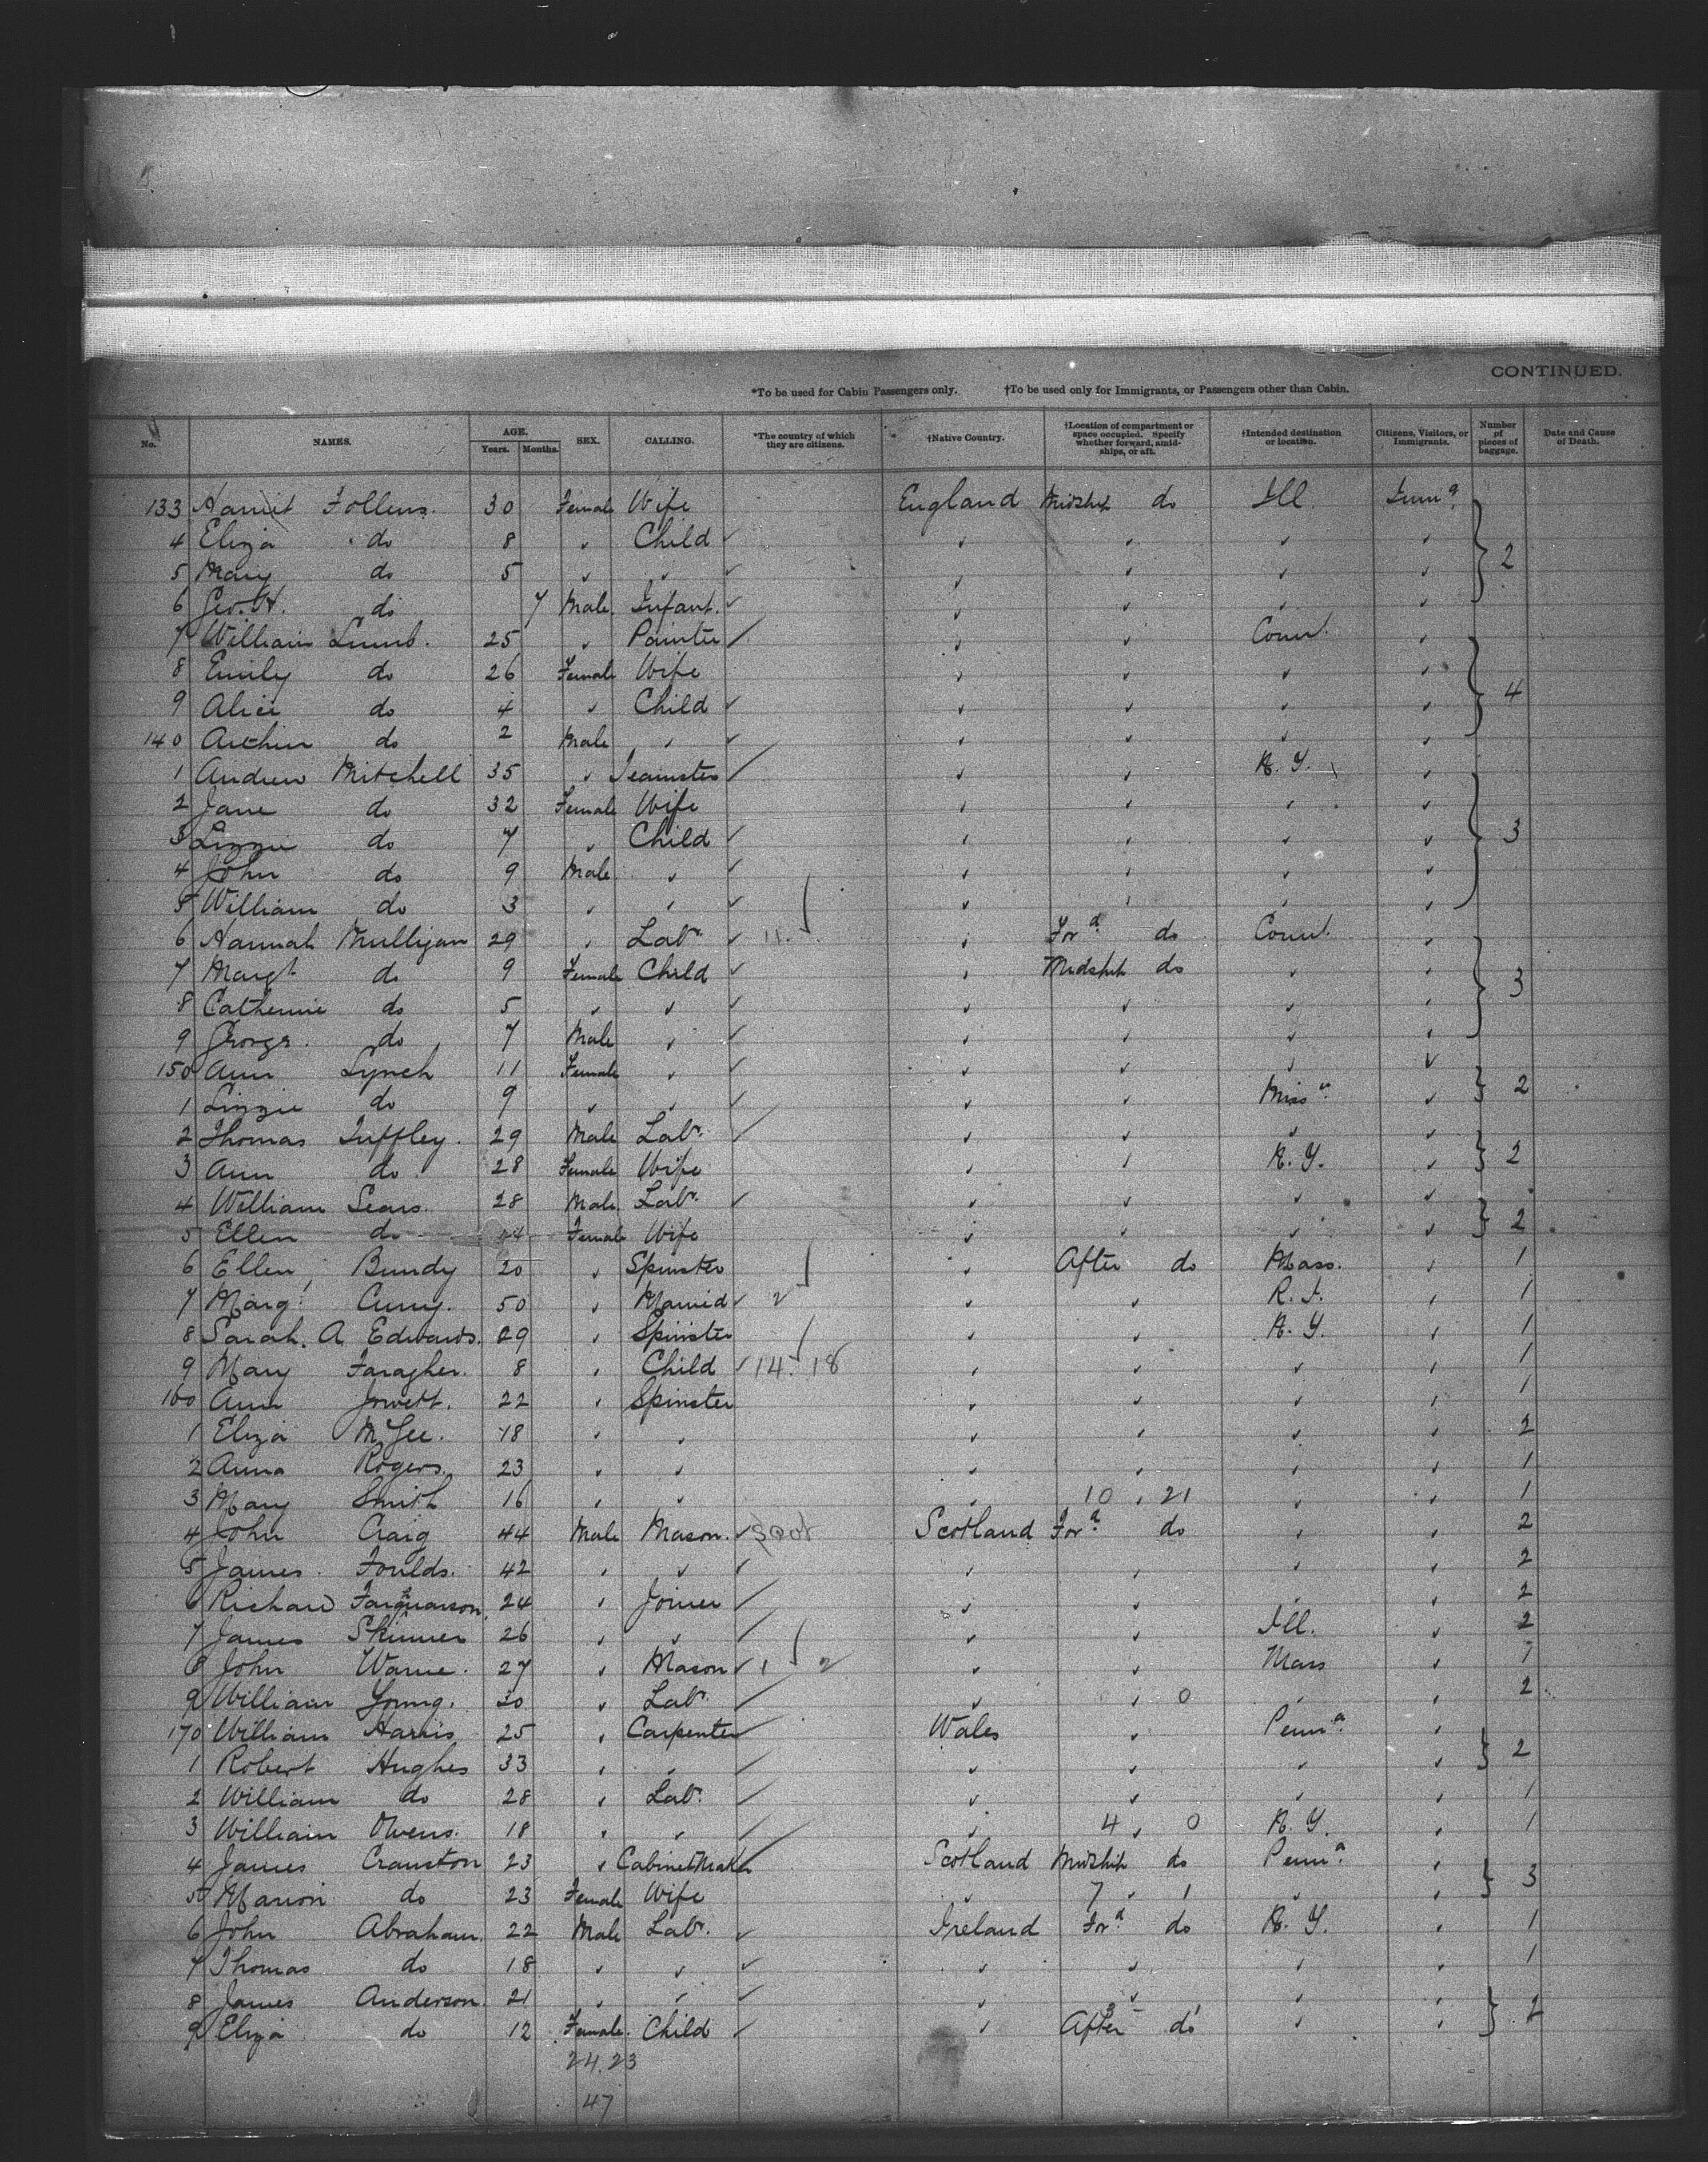 CONTINUED.
*To be used for Cabin Passengers only. †To be used only for Immigrants, or Passengers other than Cabin.
No. NAMES. AGE. Years. Months. SEX. CALLING. *The country of which they are citizens. †Native Country. †Location of compartment or space occupied. Specify whether forward, amidships, or aft. †Intended destination or location. Citizens, Visitors, or Immigrants. Number of pieces of baggage. Date and Cause of Death.
133 Harriet Follens. 30 Female Wife England Midship do Ill. Immg.
4 Eliza do 8 " Child ✓ " " " "
5 Mary do 5 " " ✓ " " " " } 2
6 Geo. H. do 7 Male. Infant. ✓ " " " "
7 William Lumb. 25 " Painter ✓ " " Conn. "
8 Emily do 26 Female Wife " " " "
9 Alice do 4 " Child ✓ " " " " } 4
140 Arthur do 2 Male " ✓ " " " "
1 Andrew Mitchell 35 " Teamster ✓ " " N. Y. "
2 Jane do 32 Female Wife " " " "
3 Lizzie do 7 " Child ✓ " " " " } 3
4 John do 9 Male " ✓ " " " "
5 William do 3 " " ✓ " " " "
6 Hannah Mulligan 29 " Labr. ✓ 11. " Ford. do Conn. "
7 Margt do 9 Female Child ✓ " Midship do " " } 3
8 Catherine do 5 " " ✓ " " " "
9 George. do 7 Male " ✓ " " " "
150 Ann Lynch 11 Female " ✓ " " " "
1 Lizzie do 9 " " ✓ " " Missa. " } 2
2 Thomas Tuffley. 29 Male Labr. ✓ " " " "
3 Ann do 28 Female Wife " " N. Y. " } 2
4 William Sears. 28 Male. Labr. ✓ " " " "
5 Ellen do Female Wife " " " " } 2
6 Ellen Bundy 20 " Spinster " After do Mass. " 1
7 Margt. Curry. 50 " Married ✓ 2 " " R. I. " 1
8 Sarah. A Edwards. 29 " Spinster " " N. Y. " 1
9 Mary Faragher. 8 " Child ✓ 14. 18 " " " " 1
160 Ann Jowett. 22 " Spinster " " " " 1
1 Eliza McGee. 18 " " " " " " 2
2 Anna Rogers. 23 " " " " " " 1
3 Mary Smith 16 " " " 10 " 21 " " 1
4 John Craig 44 Male Mason. ✓ Scot Scotland Ford. do " " 2
5 James Foulds. 42 " " ✓ " " " " 2
6 Richard Farquarson, 24 " Joiner ✓ " " " " 2
7 James Skinner 26 " " ✓ " " Ill. " 2
8 John Warne. 27 " Mason ✓ 1 2 " " Mass " 1
9 William Young. 20 " Labr. ✓ " " 0 " " 2
170 William Harris 25 " Carpenter ✓ Wales " Penna. "
1 Robert Hughes 33 " " ✓ " " " " } 2
2 William do 28 " Labr. ✓ " " " " 1
3 William Owens. 18 " " ✓ " 4 " 0 N. Y. " 1
4 James Cranston 23 " Cabinet Maker ✓ Scotland Midship do Penna. "
5 Marion do 23 Female Wife " 7 " 1 " " } 3
6 John Abraham. 22 Male Labr. ✓ Ireland Ford. do N. Y. " 1
7 Thomas do 18 " " ✓ " " " " 1
8 James Anderson. 21 " " ✓ " " " "
9 Eliza do 12 Female. Child ✓ " After do " " } 2
24. 23
47